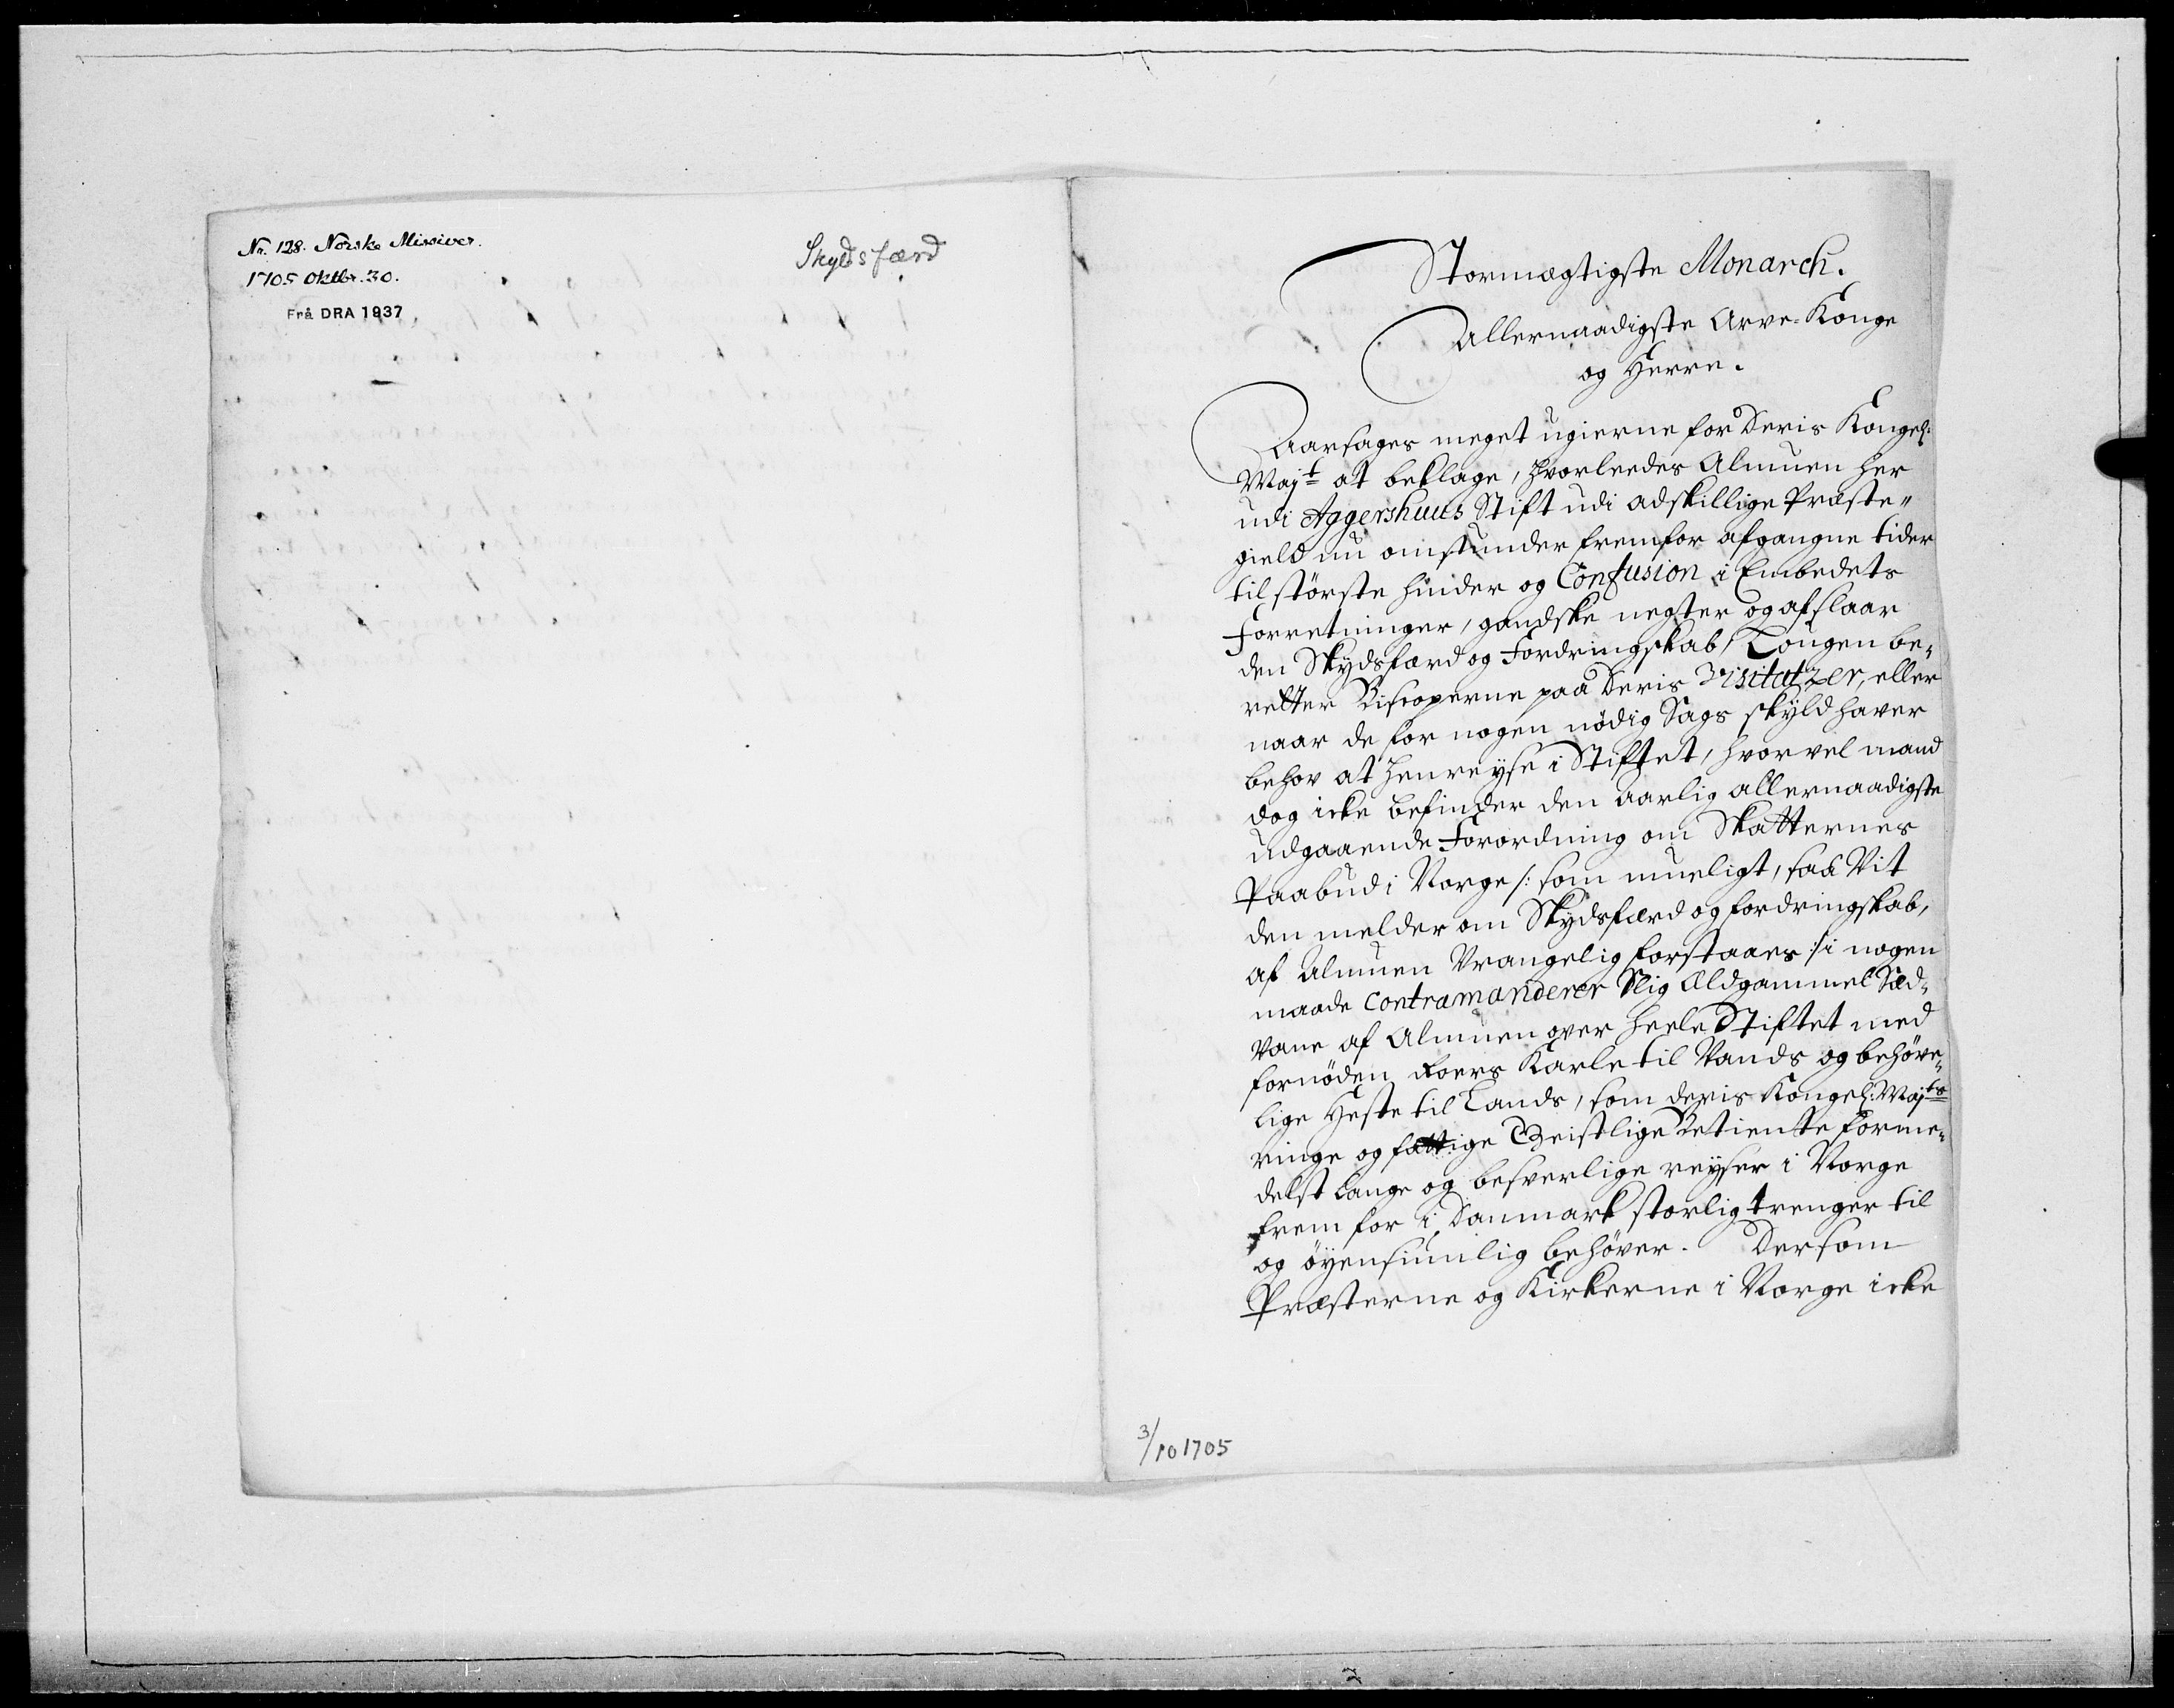 Nr. 128. Norske Missiver.
1705 Oktbr. 30.
Frå DRA 1937
Skydsfærd
Stormegtigste Monarch.
Allernaadigste Arve-Konge
og Herre.
Aarsages meget ugierne for Deris Kongel:
Majt at beklage, hvorleedes Almuen her
udi Aggershuus Stift udi adskillige Præste"
gield nu omstunder fremfor afgangne tider
til störste hinder og Confusion i Embedets
Forretninger, gandske negter og afslaar
den Skydsfærd og Fordringskab, Lougen be"
retter Biscoperne paa Deris Visitatzer, eller
naar de for nogen nödig Sags skyld haver
behov at henreyse i Stiftet, hvorvel mand
dog icke befinder den aarlig allernaadigste
udgaaende Forordning om Skatternes
Paabud i Norge /: som mueligt, saa Vit
den melder om Skydsfærd og fordringskab,
af Almuen Vrangelig forstaaes :/ i nogen
maade Contramanderer Slig Ældgammel Sæd"
vane af Almuen over heele Stiftet med
fornöden Roers Karle til Vands og behöve"
lige Heste til Lands, som deris Kongel: Majts
ringe og fattige Geistlige Betiente forme"
delst lange og besverlige reyser i Norge
frem for i Danmark storlig trenger til
og öyensiunlig behöver. Dersom
Præsterne og Kirkerne i Norge icke
3/10 1705